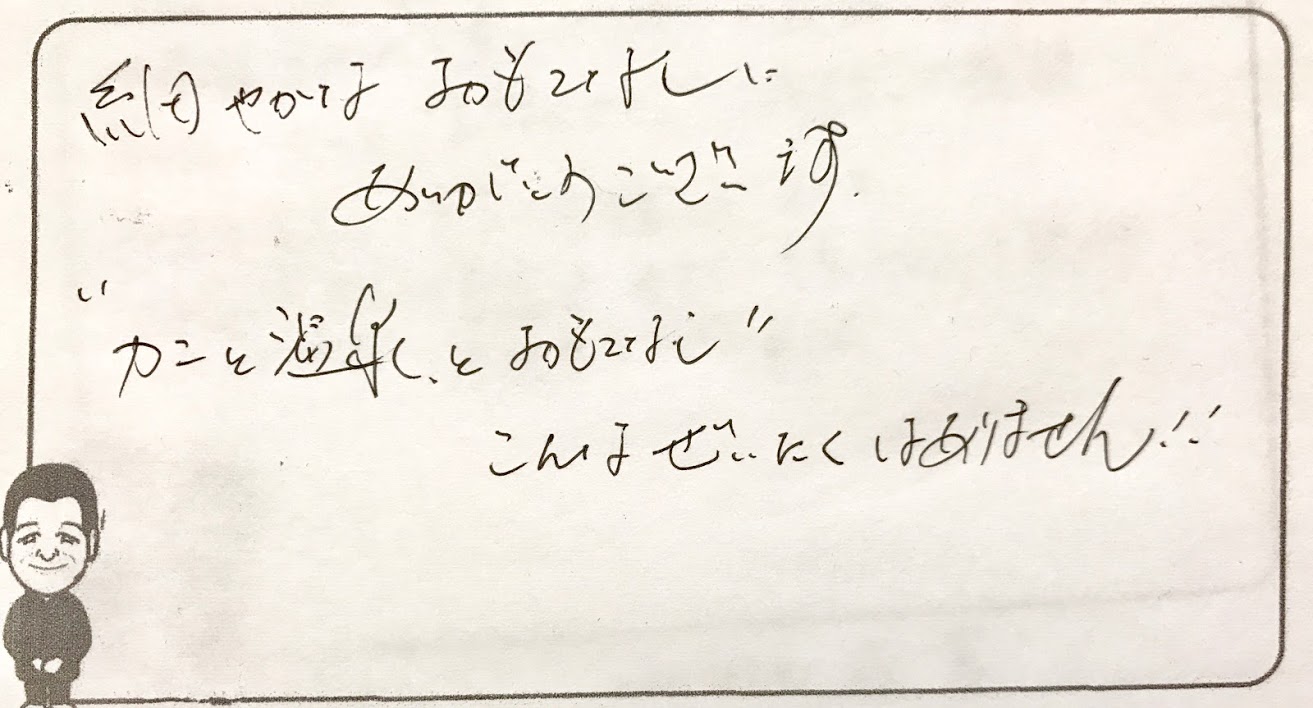 細やかなおもてなしに
ありがとうございます.
"カニと温泉、とおもてなし"
こんなぜいたくはありません!!